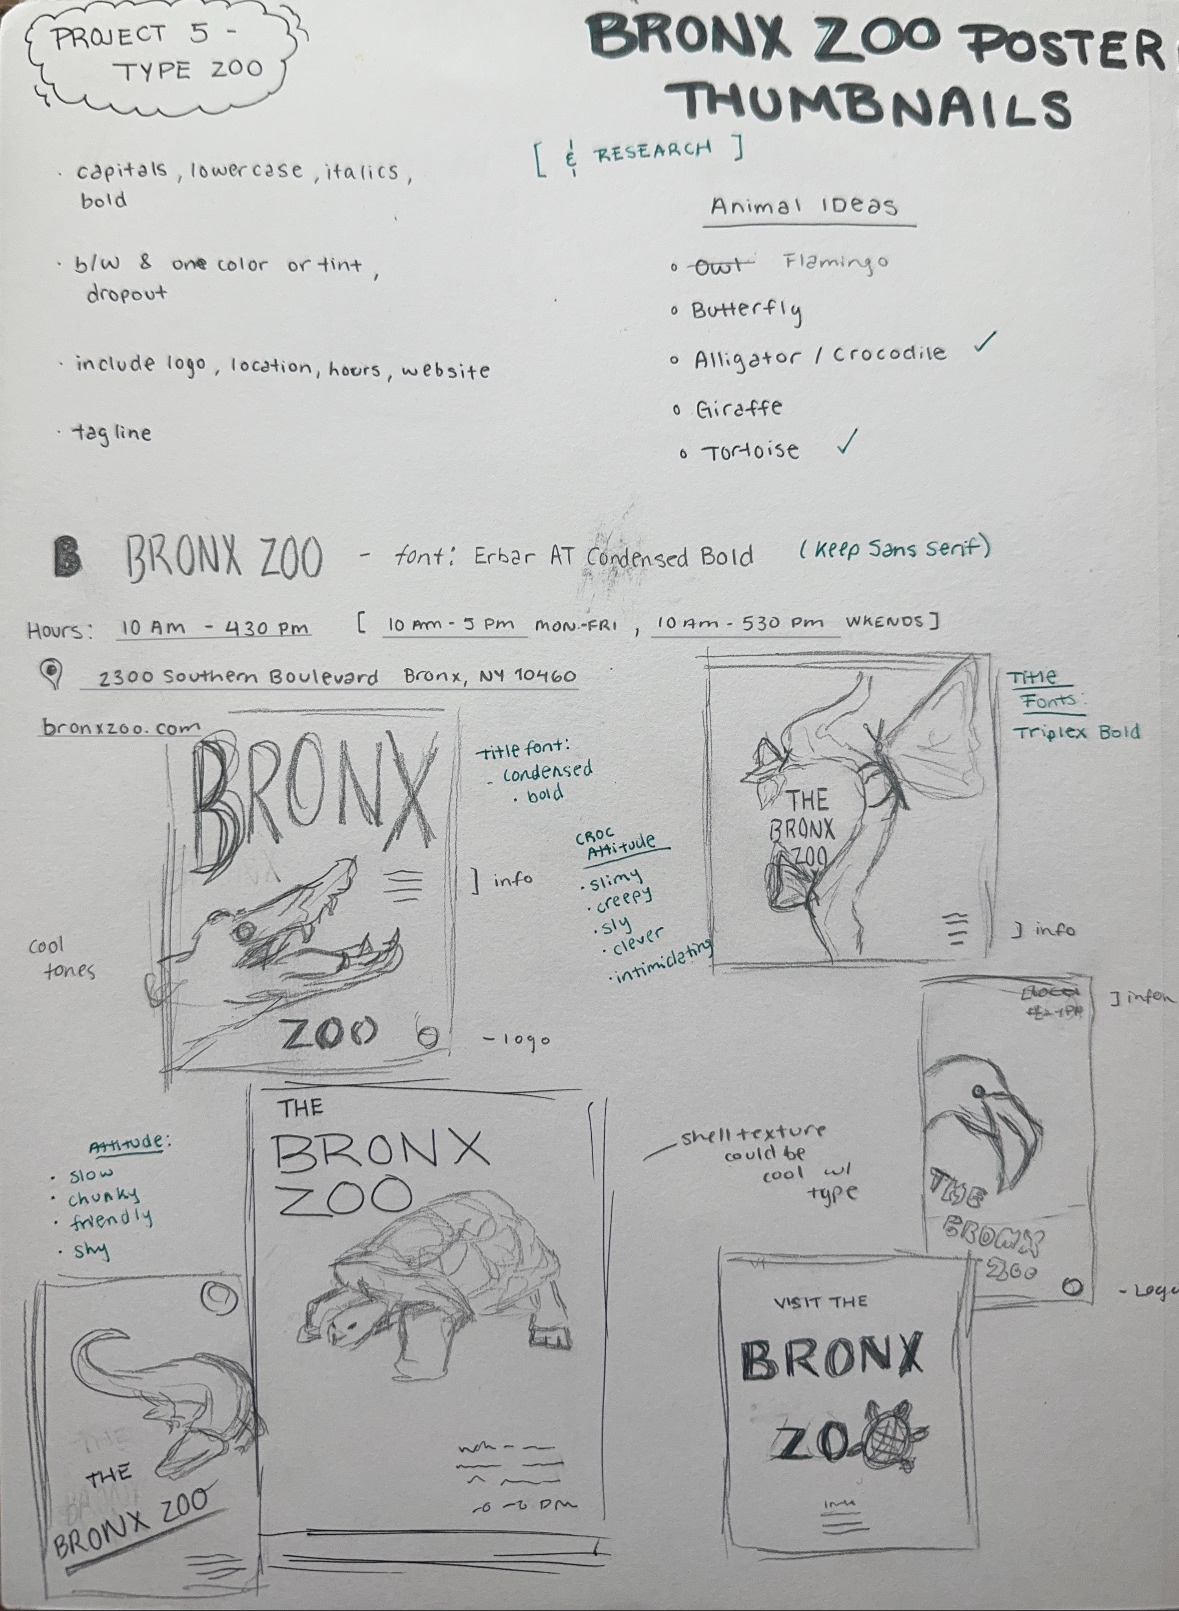 PROJECT 5 -
TYPE ZOO
BRONX ZOO POSTER
THUMBNAILS
[ & RESEARCH ]
· capitals, lowercase, italics,
bold
· b/w & one color or tint,
dropout
· include logo, location, hours, website
· tagline
Animal Ideas
o Owl Flamingo
o Butterfly
o Alligator / Crocodile ✓
o Giraffe
o Tortoise ✓
B BRONX ZOO - font: Erbar AT Condensed Bold (Keep Sans Serif)
Hours: 10 AM - 430 PM [ 10 AM - 5 PM MON-FRI, 10 AM - 530 PM WKENDS ]
2300 Southern Boulevard Bronx, NY 10460
bronxzoo.com
BRONX
ZOO
Title font:
- condensed
· bold
] info
cool
tones
- logo
CROC
Attitude
· slimy
· creepy
· sly
· clever
· intimidating
THE
BRONX
ZOO
] info
Title
Fonts:
Triplex Bold
THE
BRONX
ZOO
- Logo
THE
BRONX
ZOO
shell texture
could be
cool w/
type
Attitude:
· slow
· chunky
· friendly
· shy
THE
BRONX ZOO
VISIT THE
BRONX
ZO